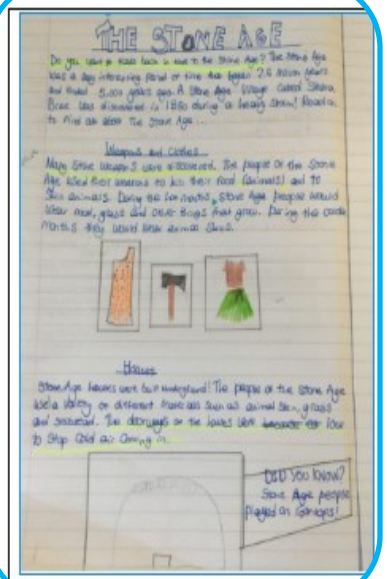 THE STONE AGE
Do you want to travel back in time to the Stone Age? The Stone Age
was a very interesting period of time that began 2.6 million years
and ended 5,000 years ago. A Stone Age village called Skara
Brae was discovered in 1850 during a heavy storm! Read on
to find out about the Stone Age...
Weapons and Clothes
Many Stone weapons were discovered. The people of the Stone
Age used their weapons to kill their food (animals) and to
Skin animals. During the hot months, Stone Age people would
wear moss, grass and other things that grow. During the
months they would wear animal
Houses
Stone Age houses were built underground! The people of the Stone Age
used a variety of different materials such as animal skin, grass
and The doorways of the houses were low
to Stop Cold air Coming in.
DID YOU KNOW?
Stone Age people
played on